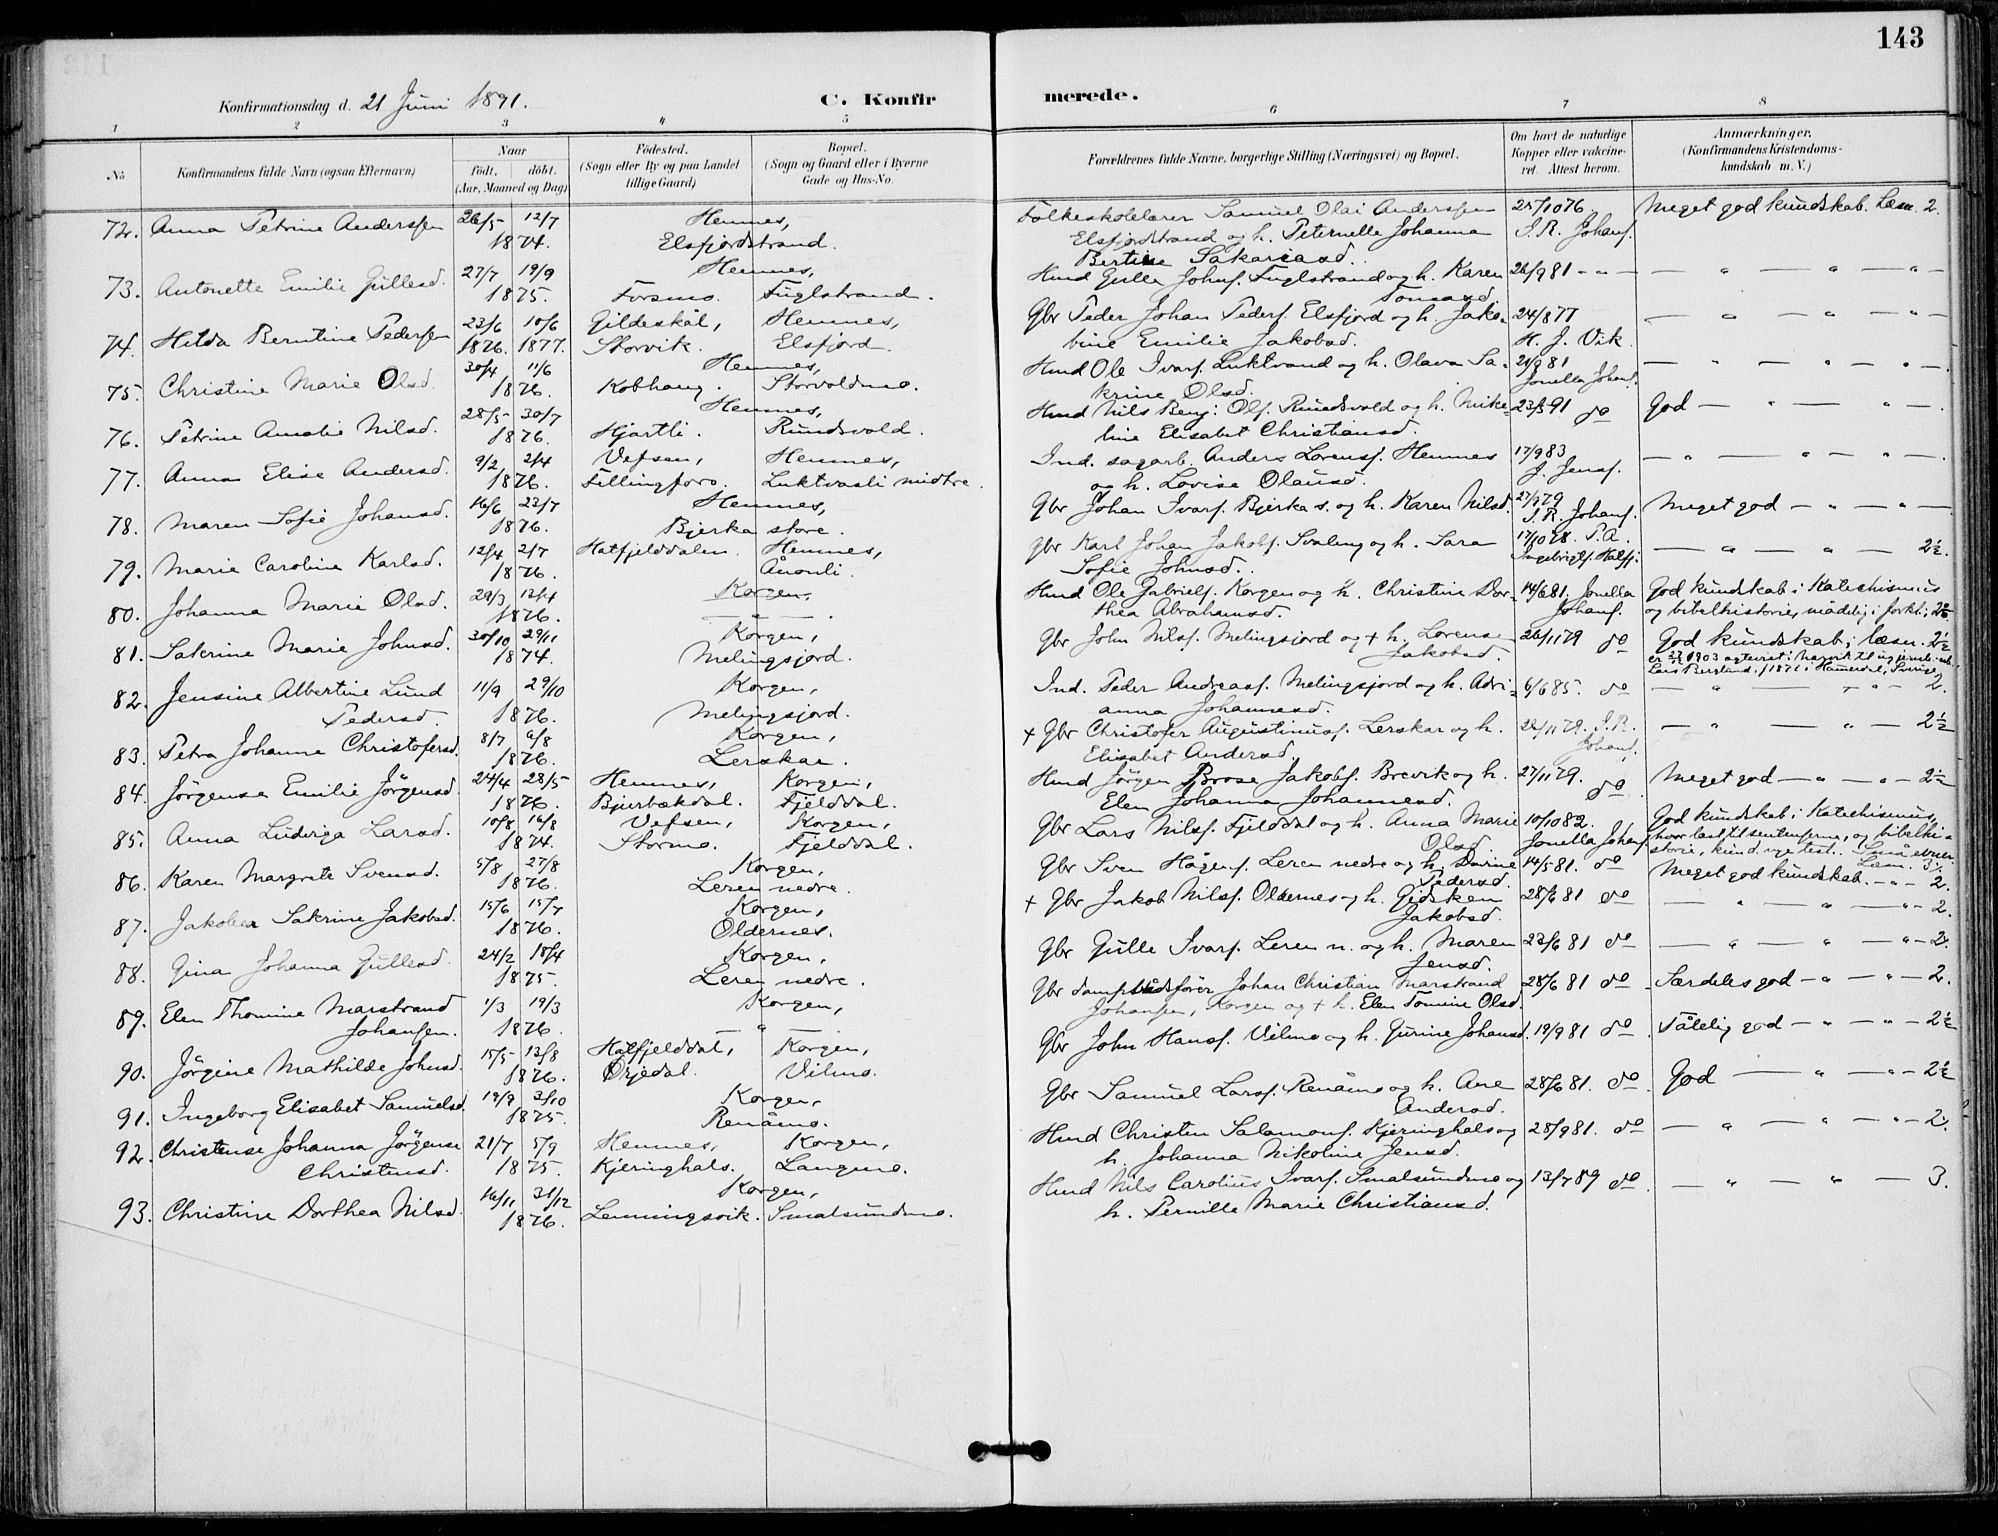 143
Konfirmationsdag d. 21 Juni 1891. C. Konfirmerede.
1 2 3 4 5 6 7 8
No. Konfirmandens fulde Navn (ogsaa Efternavn) Naar født. døbt. (Aar, Maaned og Dag) Fødested. (Sogn eller By og paa Landet tillige Gaard) Bopæl. (Sogn og Gaard eller i Byerne Gade og Hus-No. Forældrenes fulde Navne, borgerlige Stilling (Næringsvei) og Bopæl. Om havt de naturlige Kopper eller vakcineret. Attest herom. Anmærkninger. (Konfirmandens Kristendomskundskab m. V.)
72. Anna Petrine Anderssen 26/5 12/7 Hemnes, Folkeskolelærer Samuel Olai Anderssen 25/10 76 Meget god kundskab. Læsn. 2.
1874. Elsfjordstrand. Elsfjordstrand og h. Peternelle Johanna J. R. Johans.
Bertine Sakariasd.
73. Antonette Emilie Gullesd. 27/7 19/9 Hemnes, Hmd Gulle Johns. Fuglstrand og h. Karen 26/9 81 - " - — " — " — " —
1875. Forsmo. Fuglstrand. Tomasd.
74. Hilda Berntine Pedersen 23/6 10/6 Gildeskål, Hemnes, Gbr Peder Johan Peders. Elsfjord og h. Jako- 24/8 77 — " — " — " —
1876. 1877. Storvik. Elsfjord. bine Emilie Jakobsd. H. J. Vik
75. Christine Marie Olsd. 30/4 11/6 Hemnes, Hmd Ole Ivars. Luktvand og h. Olava Sa- 21/9 81 — " — " — " —
1876. Kobhaug. Storvoldmo. krine Olsd. Jonella Johans.
76. Petrine Amalie Nilsd. 28/5 30/7 Hemnes, Hmd Nils Benj: Ols. Rundsvold og h. Nike- 23/5 91 do God — " — " —
1876. Hjartli. Rundsvold. line Elisabet Christiansd.
77. Anna Elise Andersd. 9/2 2/4 Vefsen, Hemnes, Ind. sagarb. Anders Lorens. Hemnes 17/9 83 — " — " — " —
1876. Fellingfors. Luktvasli midtre. og h. Lovise Olausd. J. Jens.
78. Maren Sofie Johansd. 16/6 23/7 Hemnes, Gbr Johan Ivars. Bjerka s. og h. Karen Nilsd. 27/9 79 Meget god — " — " —
1876. Bjerka store. J. R. Johans.
79. Marie Caroline Karlsd. 12/4 2/7 Hatfjelddalen. Hemnes, Gbr Karl Johan Jakobs. Svaleng og h. Sara 17/10 78. P. A. — " — " — 2½.
1876. Ånonli. Sofie Johnsd. Ingebrigts. Hatfj:
80. Johanna Marie Olsd. 29/3 12/4 Korgen, Hmd Ole Gabriels. Korgen og h. Christine Dor- 14/6 81. Jonella God kundskab i Katechismus
1876. — " — thea Abrahamsd. Johans. og bibelhistorie, mådelig i forkl: 2½
81. Sakrine Marie Johnsd. 30/10 29/11 Korgen, Gbr John Nils. Melingsjord og + h. Lorense 26/11 79 do God kundskab; læsn. 2½
1874. Melingsjord. Jakobsd. 1903 ægteviet i Narvik til
Lars Berglund, f 1871 i Hammerdal, Sverige
82. Jensine Albertine Lund 11/9 29/10 Korgen, Ind. Peder Andreas. Melingsjord og h. Adri- 6/6 85. do — " — " — 2.
Pedersd. 1876. Melingsjord. anna Johannesd.
83. Petra Johanna Christofersd. 8/7 6/8 Korgen, + Gbr Christofer Augustinus. Lerskar og h. 26/11 79. J. R. — " — " — 2½
1876. Lerskar. Elisabet Andersd. Johans.
84. Jørgense Emilie Jørgensd 24/4 28/5 Hemnes, Korgen, Hmd Jørgen Brose Jakobs. Brevik og h. 27/11 79. do Meget god — " — " — 2½
1876. Bjurbækdal. Fjelddal. Elen Johanna Johannesd.
85. Anna Ludviga Larsd. 10/8 16/8 Vefsen, Korgen, Gbr Lars Nils. Fjelddal og h. Anna Marie 10/10 82. God kundskab i Katechismus,
1874. Stormo. Fjelddal. Olsd. Jonella Johans. og bibelhi-
storie, kund. nye test. Små evner. Læsn. 3.
86. Karen Margrete Svensd. 5/8 27/8 Korgen, Gbr Sven Hågens. Leren nedre og h. Dorine 14/5 81. do Meget god kundskab. - " - 2.
1876. Leren nedre. Pedersd.
87. Jakobea Sakrine Jakobsd. 15/6 15/7 Korgen, + Gbr Jakob Nils. Oldernes og h. Gidsken 28/6 81 do — " — " — " - 2.
1876. Oldernes. Jakobsd.
88. Gina Johanna Gullesd. 24/2 18/4 Korgen, Gbr Gulle Ivars. Leren n. og h. Maren 23/6 81 do — " — " — " - 2.
1875. Leren nedre. Jensd.
89. Elen Thomine Marstrand 1/3 19/3 Korgen, Gbr Dampskibsfører Johan Christian Marstrand 28/6 81 do Særdeles god - " - " - 2.
Johansen. 1876. — " — Johansen, Korgen og + h. Elen Tomine Olsd.
90. Jørgine Mathilde Johnsd. 15/5 13/8 Hatfjelddal, Korgen, Gbr John Hans. Vilmo og h. Gurine Johansd. 19/9 81 do Tålelig god — " — " - 2½
1876. Ørjedal. Vilmo.
91. Ingeborg Elisabet Samuelsd 19/9 3/10 Korgen, Gbr Samuel Lars. Renåmo og h. Ane 28/6 81. do God — " — " - 2½
1875. Renåmo. Andersd.
92. Christense Johanna Jørgense 21/7 5/9 Hemnes, Korgen, Hmd Christen Salamons. Kjeringhals og 28/9 81. do — " — " — " - 2.
Christensd. 1875. Kjeringhals. Langmo. h. Johanna Nikoline Jensd.
93. Christine Dorthea Nilsd. 16/11 31/12 Korgen, Hmd Nils Carolius Ivars. Smalsundmo og 13/7 89 do — " — " — 3.
1876. Lenningsvik. Smalsundmo. h. Pernille Marie Christiansd.